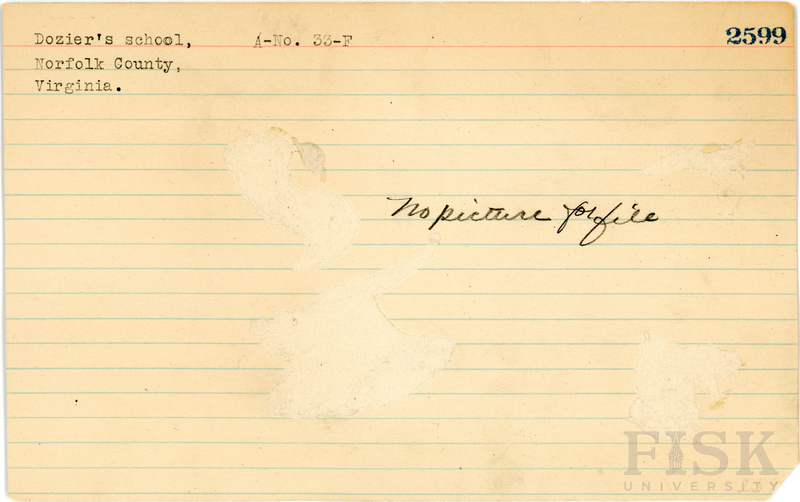 Dozier's school, A-No. 33-F 2599
Norfolk County,
Virginia.
No picture for file
FISK
UNIVERSITY